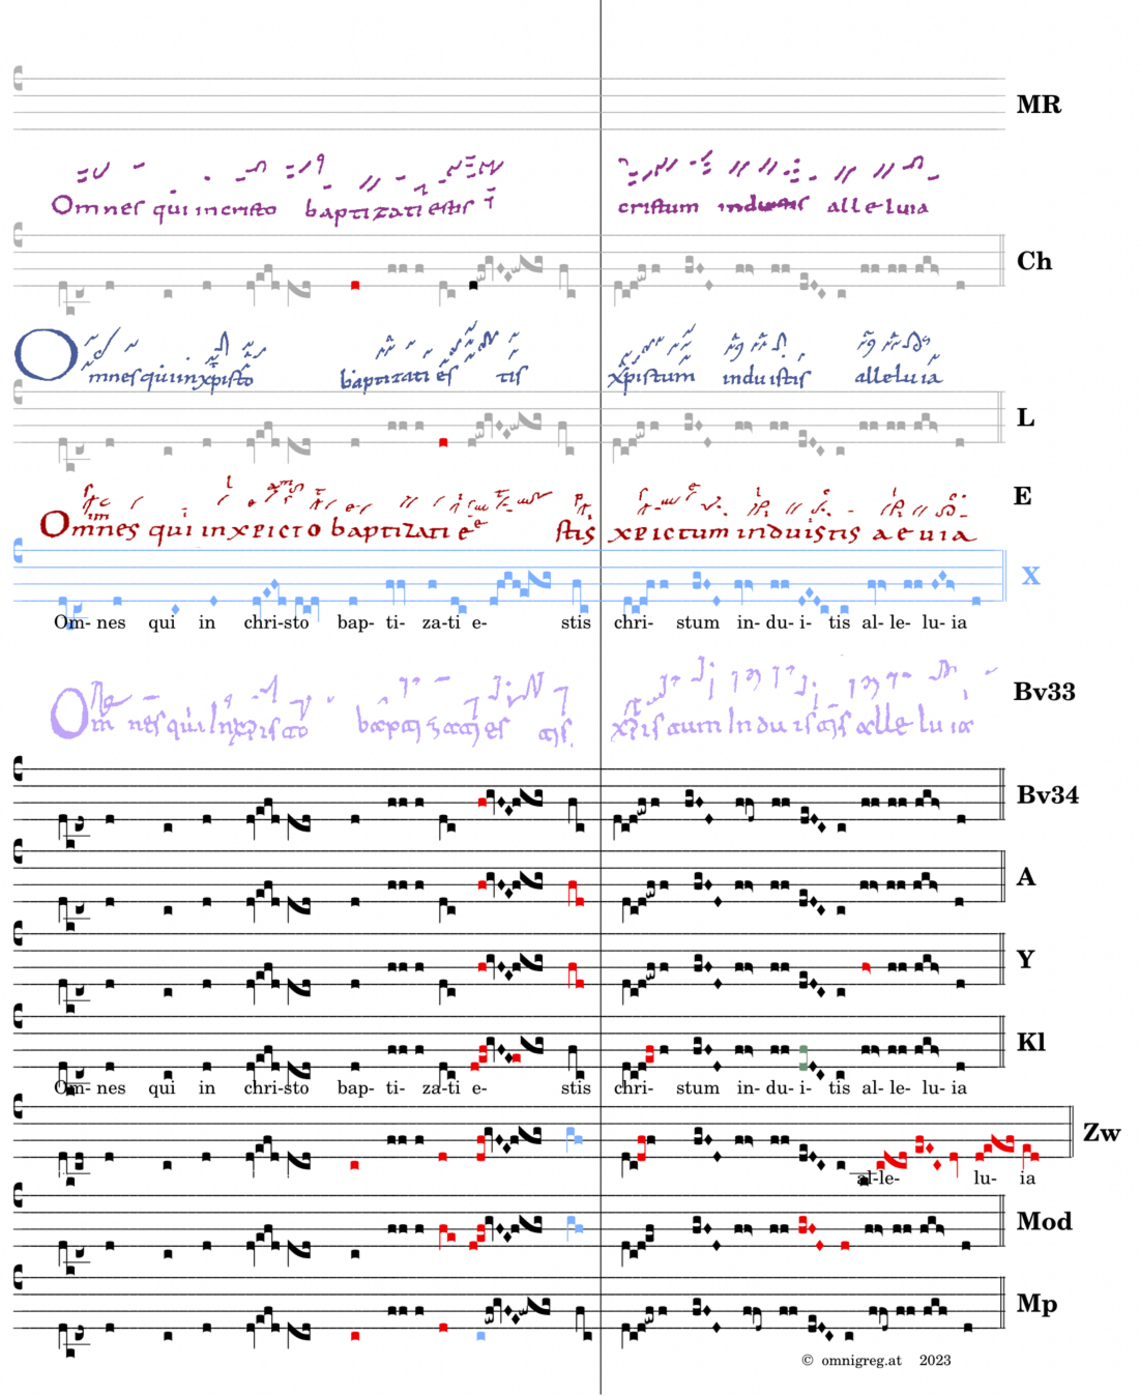 MR
Omnes qui incristo baptizati estis
cristum industis alleluia
Ch
Omnesquiinxpisto baptizati estis xpistum induistis alleluia
L
E
Omnes qui inxpicto baptizati e stis xpictum induistis aeuia
X
Om- nes qui in chri-sto bap- ti- za-ti e- stis chri- stum in- du- i- tis al- le- lu- ia
Bv33
Bv34
A
Y
Kl
Om- nes qui in chri-sto bap- ti- za-ti e- stis chri- stum in- du- i- tis al- le- lu- ia
Zw
al-le- lu- ia
Mod
Mp
© omnigreg.at 2023